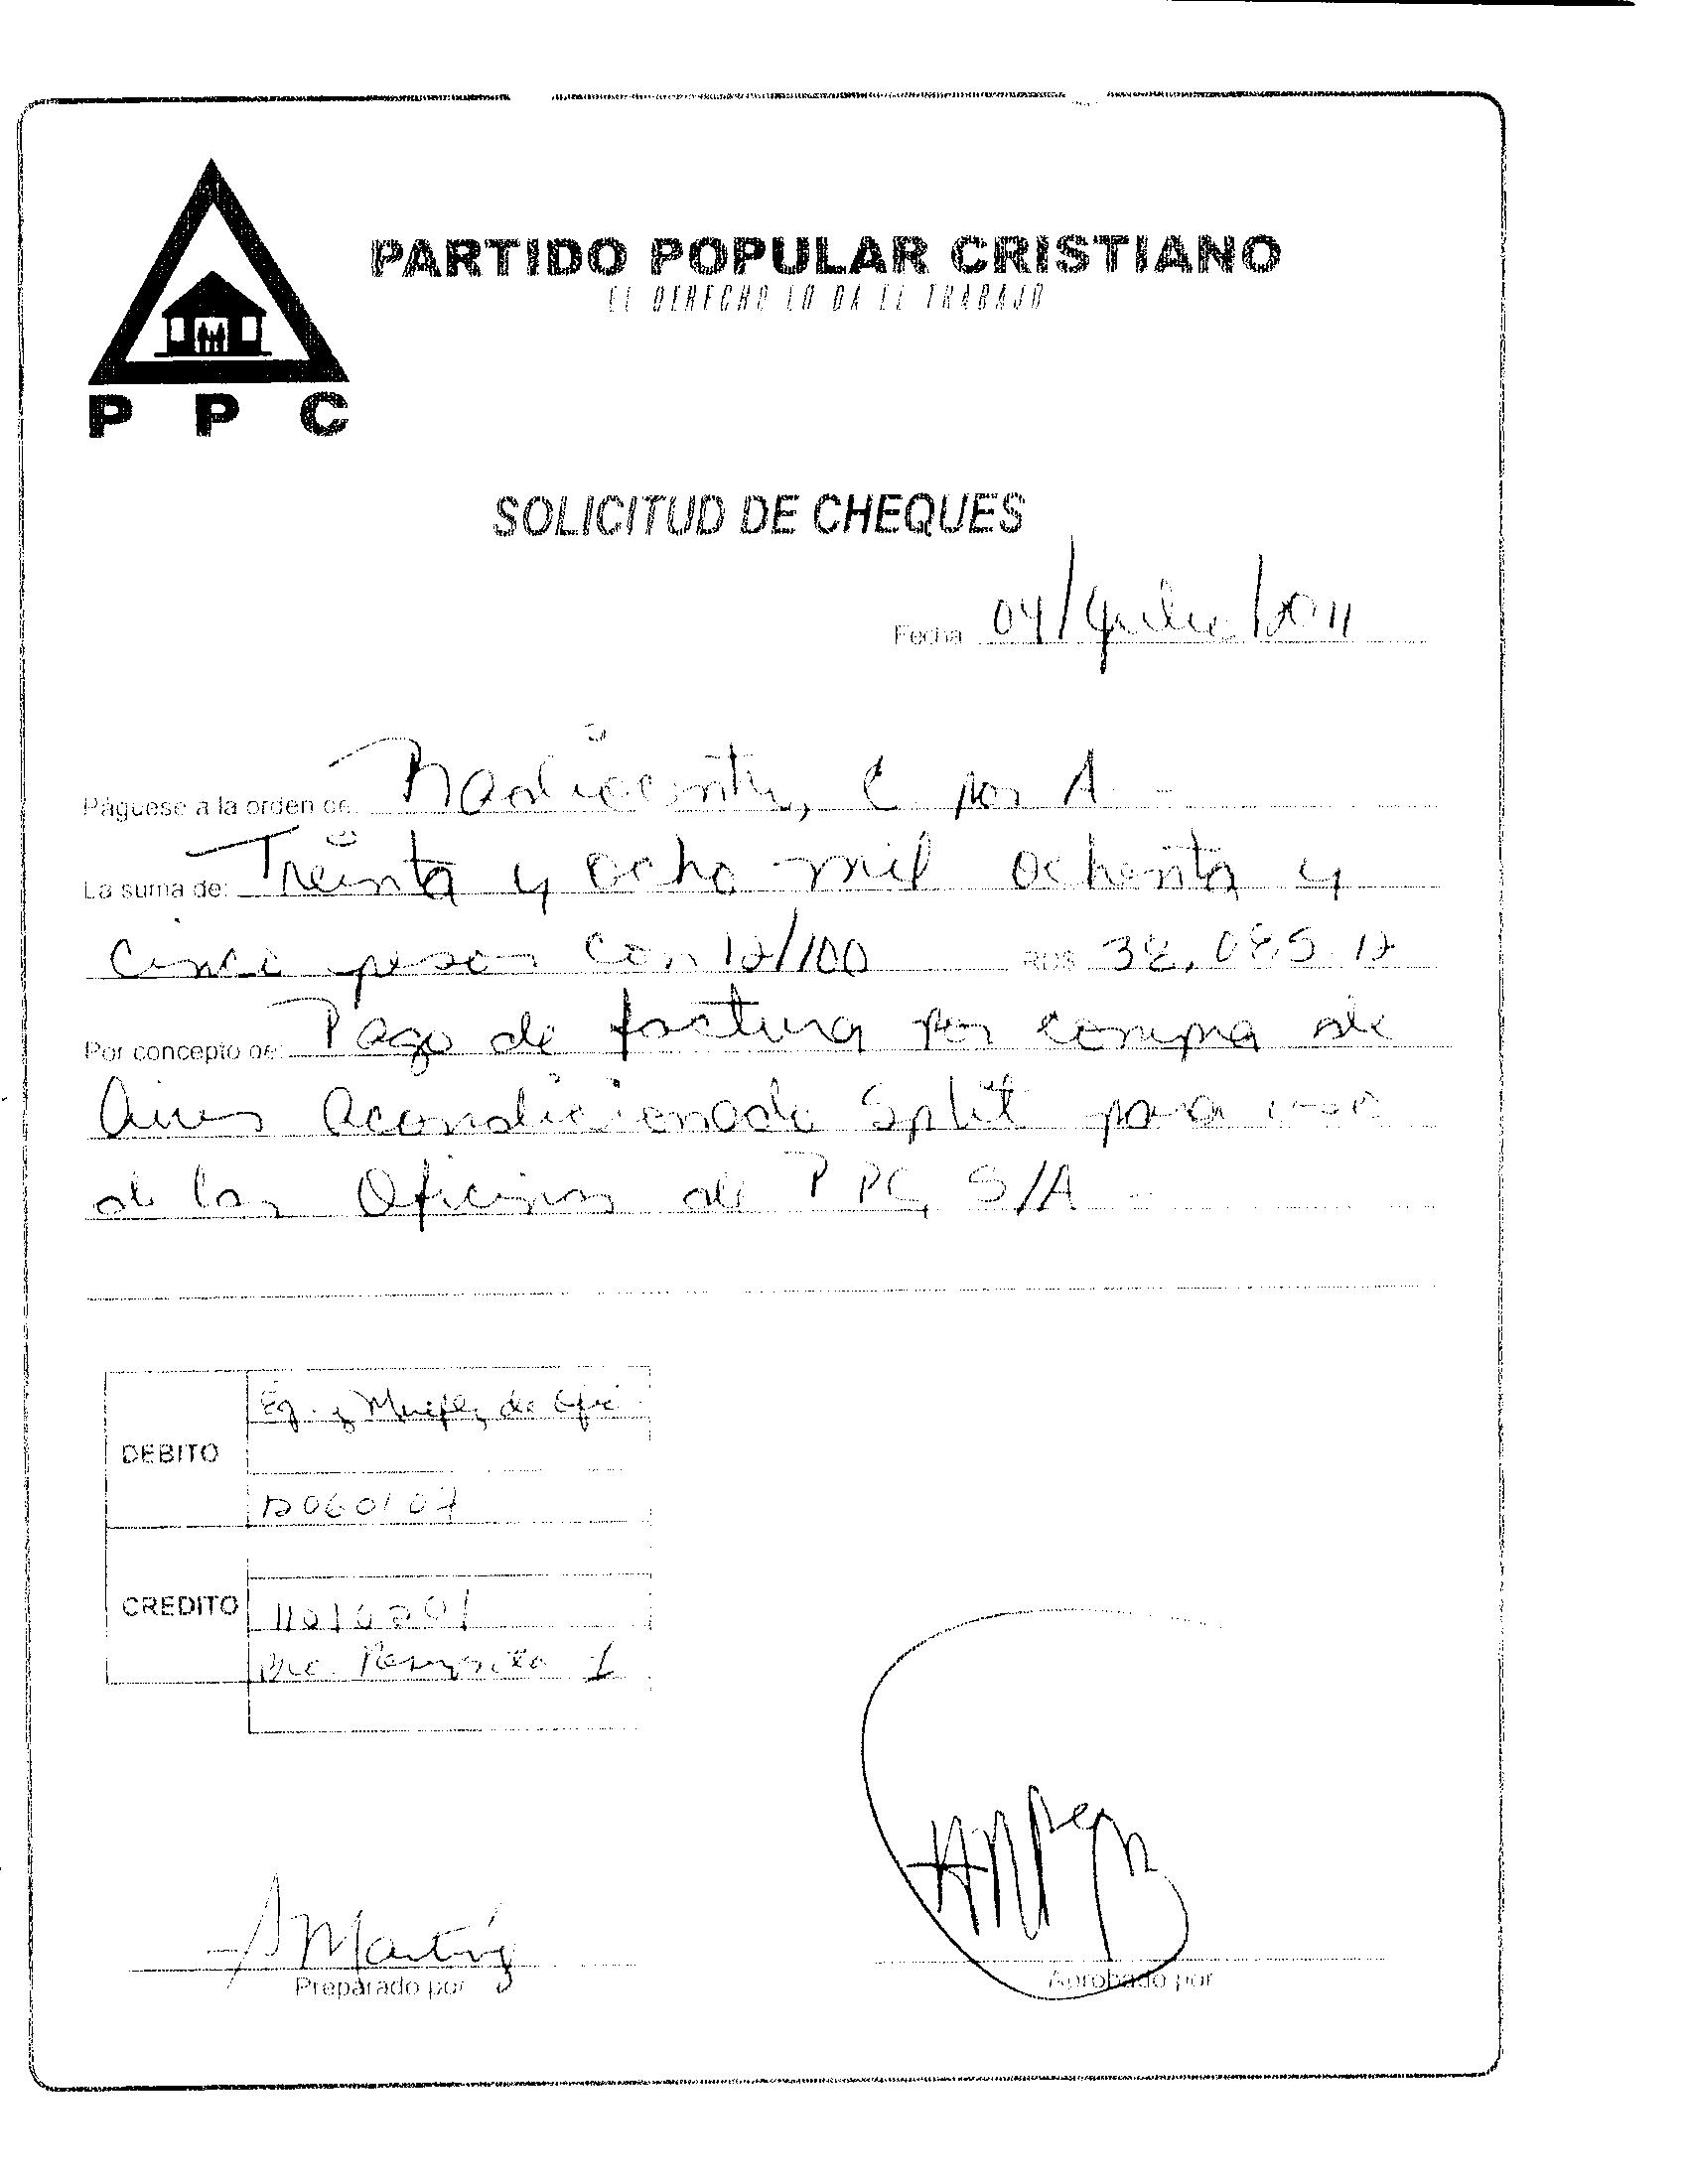 PARTIDO POPULAR CRISTIANO
EL DERECHO LO DA EL TRABAJO
P P C
SOLICITUD DE CHEQUES
Fecha 04/Julio/2011
Páguese a la orden de C por A
La suma de: Treinta y ocho mil ochenta y
cinco pesos con 12/100 RD$ 38,085.12
Por concepto de: Pago de factura por compra de
Aires Acondicionado Split para uso
de las Oficinas de PPC, S/A
DEBITO
Eq. y Muebles de Ofic.
12060107
CREDITO
11010201
Bco. Reservita 1
Martíz
Preparado por
Aprobado por